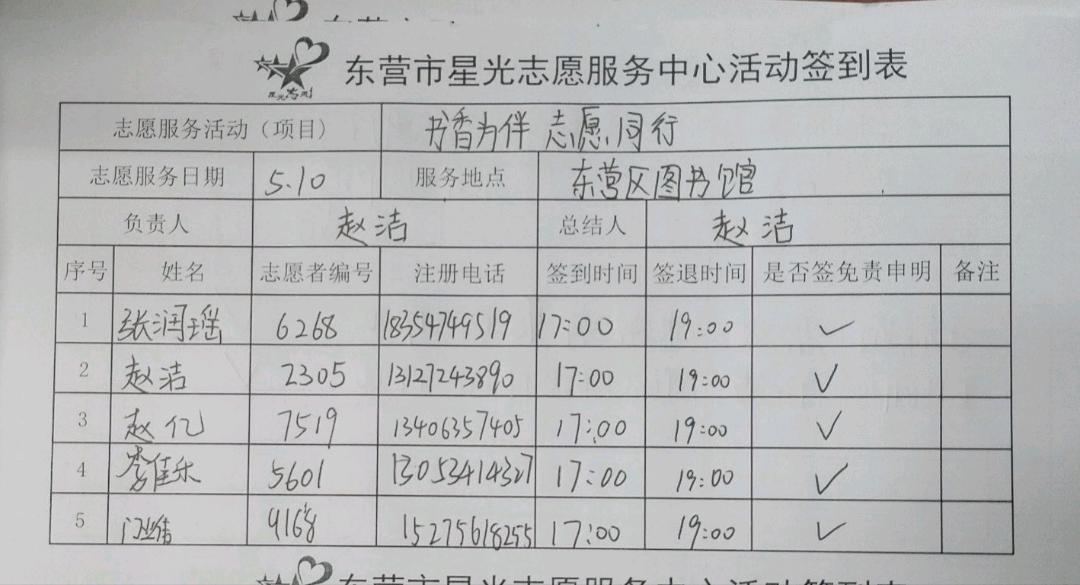 星光志愿
东营市星光志愿服务中心活动签到表
志愿服务活动（项目） 书香为伴 志愿同行
志愿服务日期 5.10 服务地点 东营区图书馆
负责人 赵洁 总结人 赵洁
序号 姓名 志愿者编号 注册电话 签到时间 签退时间 是否签免责申明 备注
1 张润瑶 6268 18354749519 17:00 19:00 ✓
2 赵洁 2305 13127243890 17:00 19:00 ✓
3 赵亿 7519 13406357405 17:00 19:00 ✓
4 李佳乐 5601 13053414327 17:00 19:00 ✓
5 9168 15275618255 17:00 19:00 ✓
东营市星光志愿服务中心活动签到表